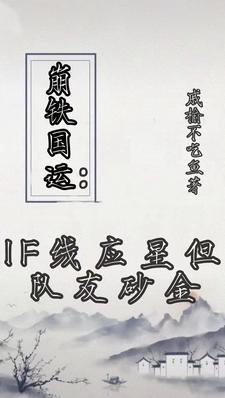 崩铁国运::
戚榆不吃鱼芽
IF线应星但
队友砂金